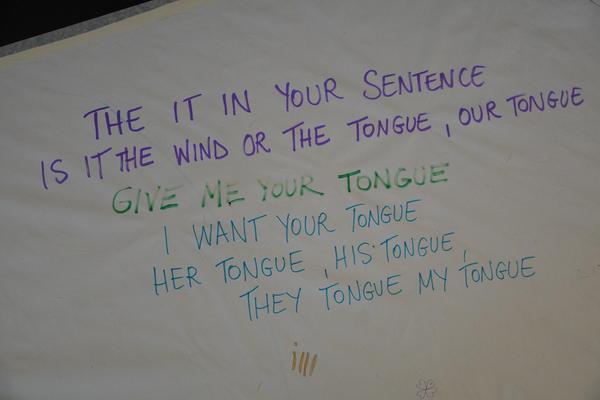 THE IT IN YOUR SENTENCE
IS IT THE WIND OR THE TONGUE, OUR TONGUE
GIVE ME YOUR TONGUE
I WANT YOUR TONGUE
HER TONGUE, HIS TONGUE,
THEY TONGUE MY TONGUE